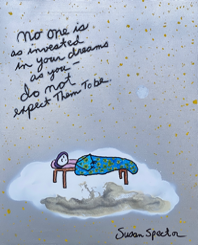 No one is
as invested
in your dreams
as you —
do not
expect Them To be.
Susan Spector